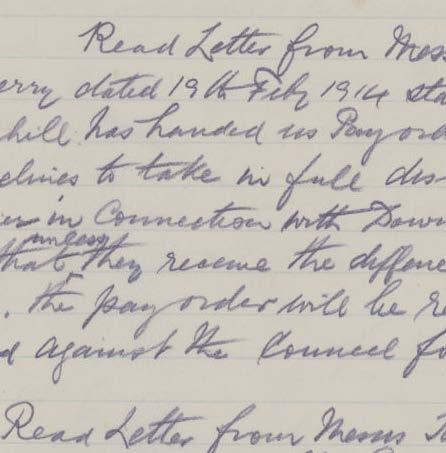 Read Letter from Mess
erry dated 19th Feby 1914 sta
hill has handed us Pay ord
clines to take in full dis
in Connection with Down
that unless they receive the differe
. the pay order will be re
d against the Council fo
Read Letter from Messrs